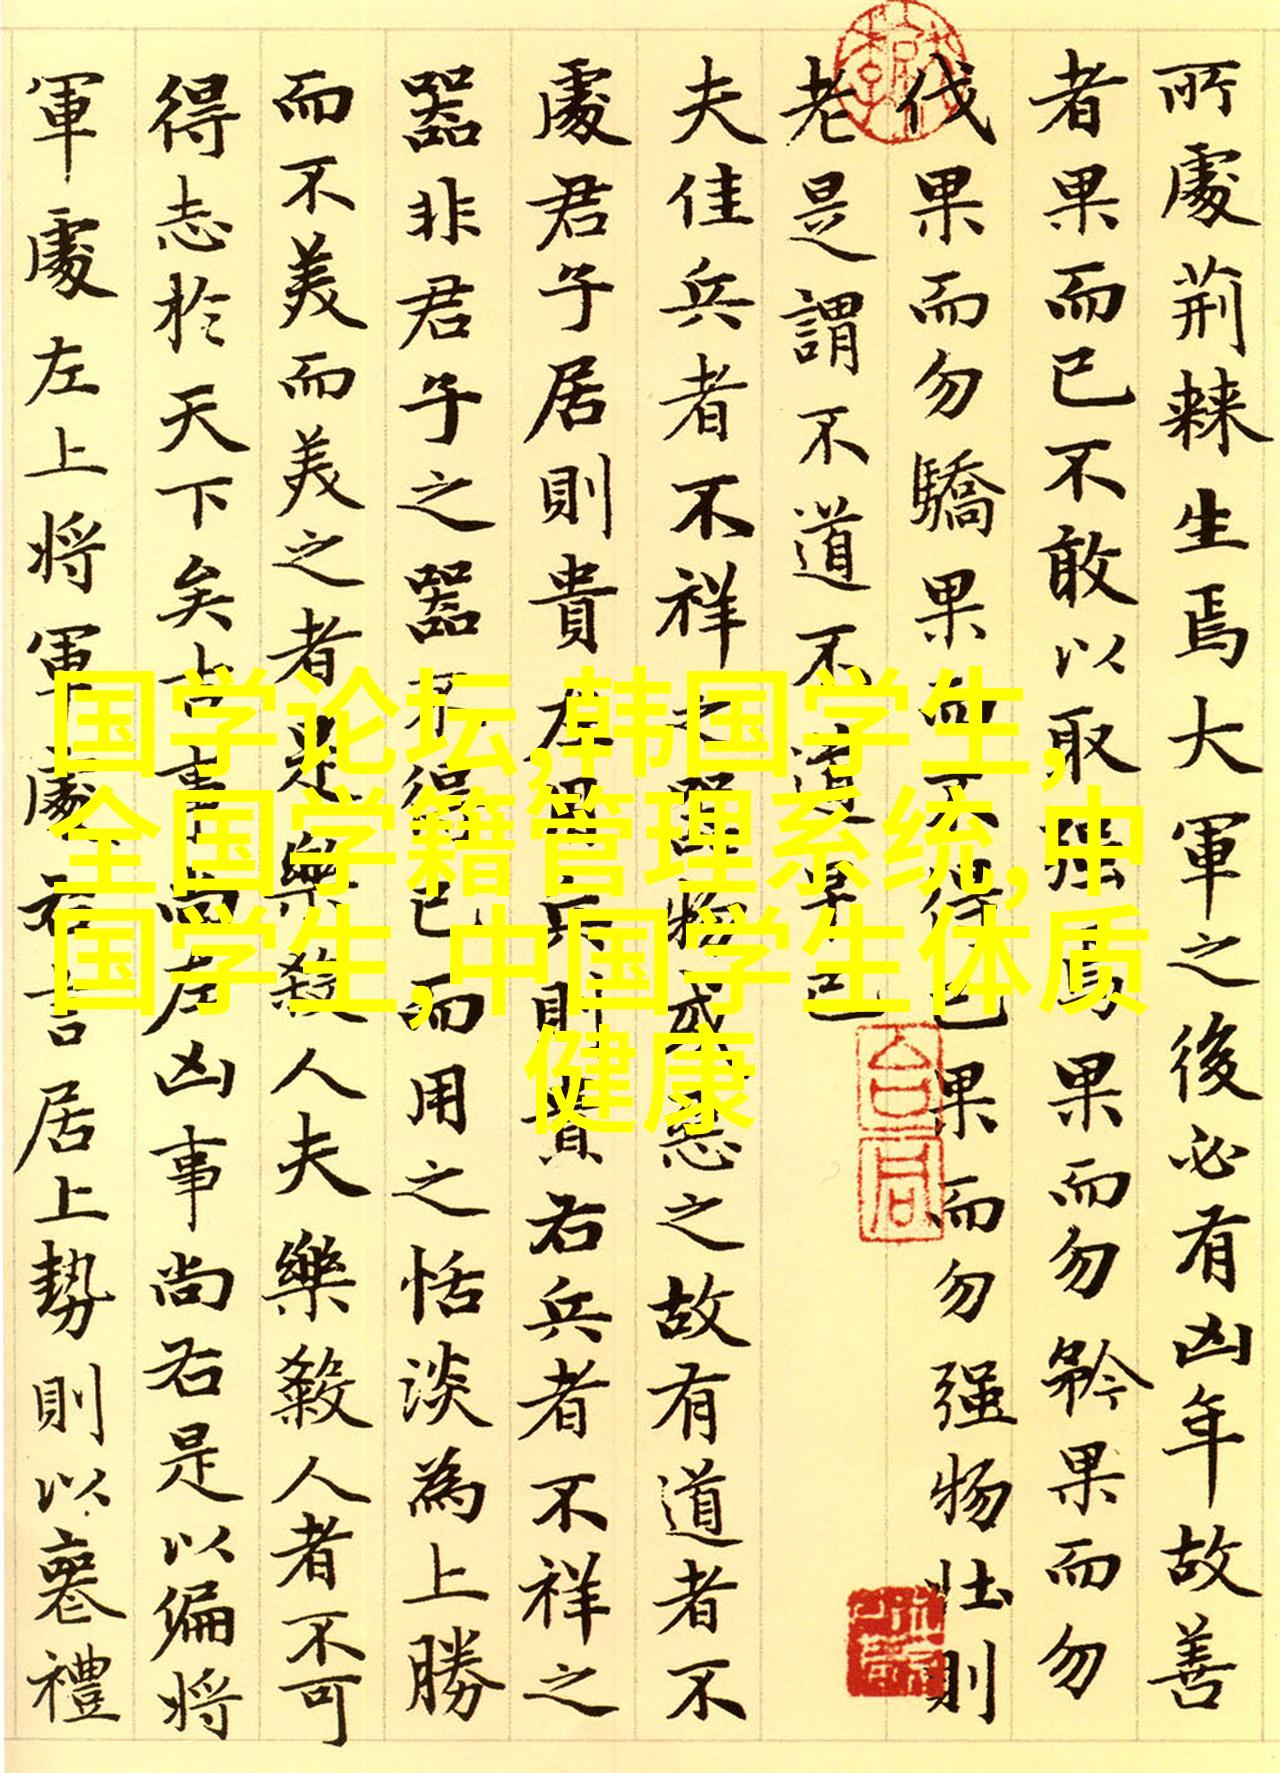 所處荊棘生焉大軍之後必有凶年故善
者果而已不敢以取强焉果而勿矜果而勿
伐果而勿驕果而不得已果而勿强物壯則
老是謂不道不道早已
夫佳兵者不祥之器物或惡之故有道者不
處君子居則貴左用兵則貴右兵者不祥之
器非君子之器不得已而用之恬淡為上勝
而不美而美之者是樂殺人夫樂殺人者不可
得志於天下矣吉事尚左凶事尚右是以偏將
軍處左上將軍處右言居上勢則以喪禮
国学论坛,韩国学生,
全国学籍管理系统,中
国学生,中国学生体质
健康